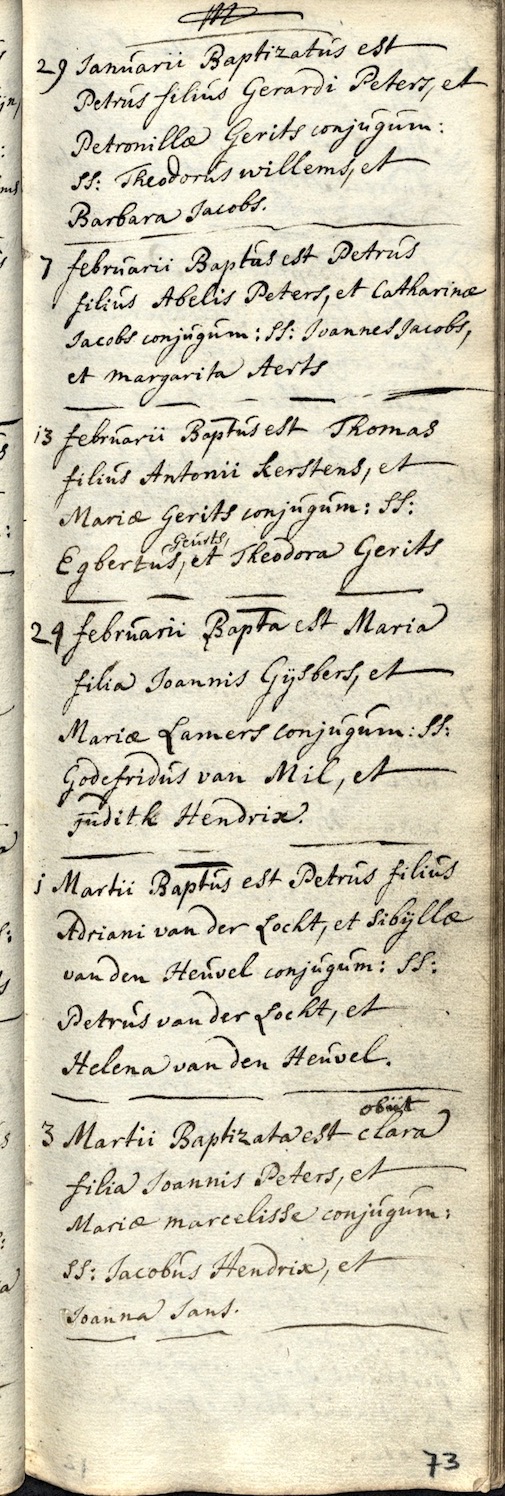 29 Januarii Baptizatus est
Petrus filius Gerardi Peters, et
Petronillæ Gerits conjugum:
SS: Theodorus willems, et
Barbara Jacobs.
7 februarii Baptus est Petrus
filius Abelis Peters, et Catharinæ
Jacobs conjugum: SS: Joannes Jacobs,
et margarita Aerts
13 februarii Baptus est Thomas
filius Antonii Kerstens, et
Mariæ Gerits conjugum: SS:
Geurts,
Egbertus, et Theodora Gerits
24 februarii Bapta est Maria
filia Joannis Gijsbers, et
Mariæ Lamers conjugum: SS:
Godefridus van Mil, et
Judith Hendrix.
1 Martii Baptus est Petrus filius
Adriani van der Locht, et Sibyllæ
van den Heuvel conjugum: SS:
Petrus van der Locht, et
Helena van den Heuvel.
obiit
3 Martii Baptizata est clara
filia Joannis Peters, et
Mariæ marcelisse conjugum:
SS: Jacobus Hendrix, et
Joanna Jans.
73